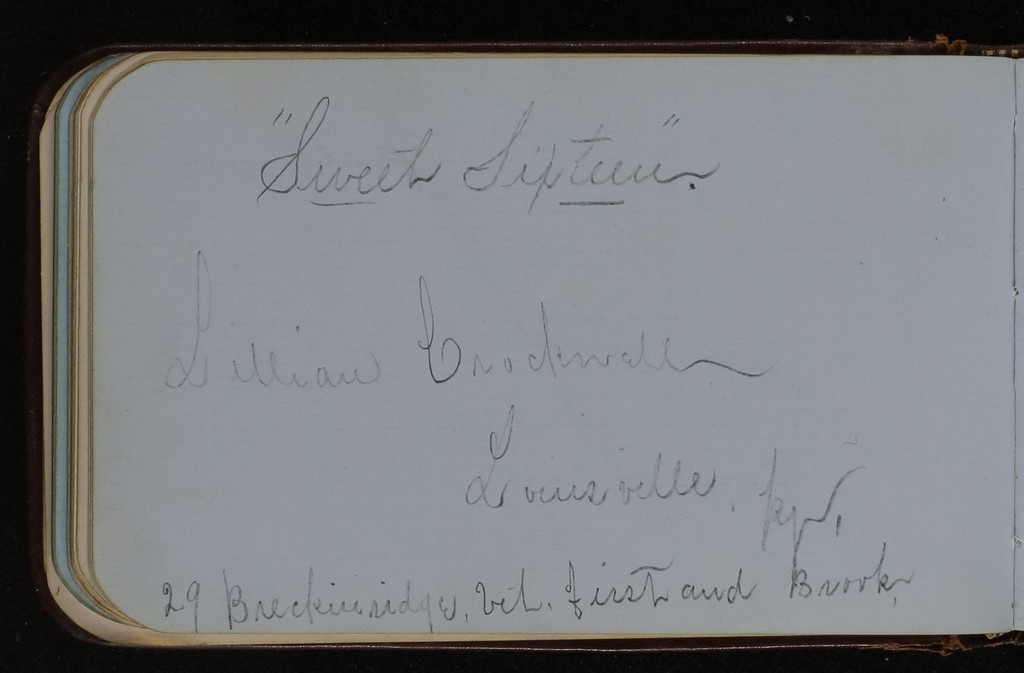 "Sweet Sixteen".
Lillian Crockwell
Louisville, Ky,
29 Breckinridge, bet. first and Brook.